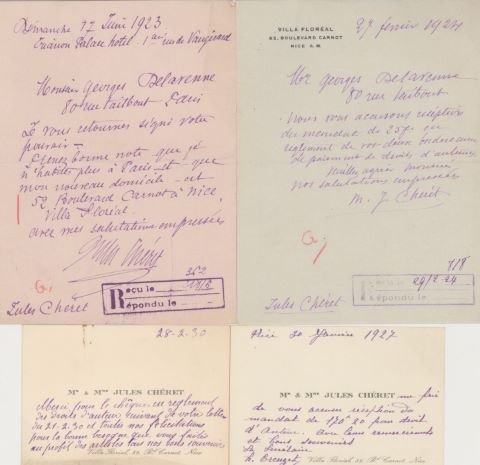 Dimanche 17 Juin 1923
Trianon Palace hotel - 1 rue de Vaugirard
Monsieur Georges Delavenne
80 rue Taitbout Paris
Je vous retourne signé votre
pouvoir -
Prenez bonne note que je
n'habite plus à Paris et que
mon nouveau domicile est
52 Boulevard Carnot à Nice
Villa Floréal
avec mes salutations empressées
Jules Chéret
Jules Chéret
Reçu le
Répondu le
VILLA FLORÉAL
52, BOULEVARD CARNOT
NICE A. M.
27 fevrier 1924
Mr Georges Delavenne
80 rue Taitbout
Nous vous accusons réception
du mandat de 25f en
règlement de vos deux bordereaux
de paiement de droits d'auteur
Veuillez agréer monsieur
nos salutations empressées
M. J. Chéret
818
Reçu le 29/2-24
Répondu le
Jules Chéret
28-2-30
Mr & Mme JULES CHÉRET
Merci pour le chèque en règlement
des droits d'auteur suivant votre lettre
du 21-2-30 et toutes nos félicitations
pour la bonne besogne que vous faites
au profit des artistes tous nos bons souvenirs
Villa Floréal, 52, Bd Carnot, Nice
Nice 20 Janvier 1927
Mr & Mme JULES CHÉRET me prie
de vous accuser réception du
mandat de 170f20 pour droit
d'Auteur - avec leurs remerciements
et bons souvenirs
Le Secrétaire
Villa Floréal, 52, Bd Carnot, Nice